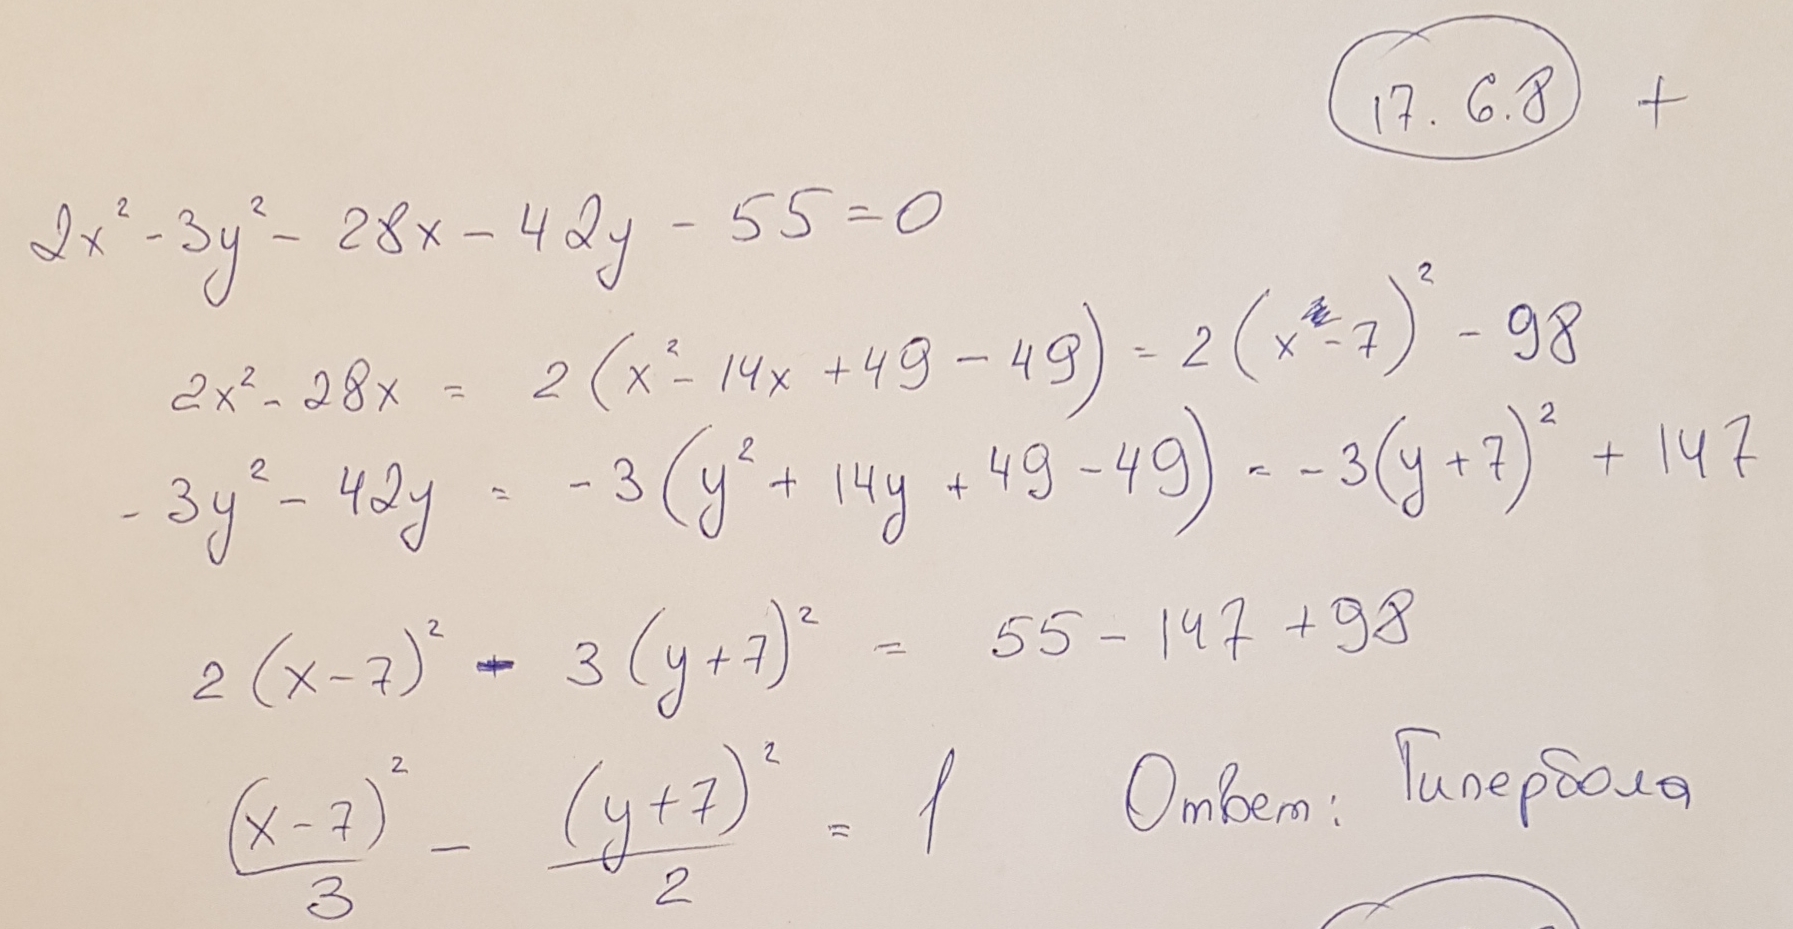 17.6.8 +
2x² - 3y² - 28x - 42y - 55 = 0
2x² - 28x = 2(x² - 14x + 49 - 49) = 2(x - 7)² - 98
- 3y² - 42y = -3(y² + 14y + 49 - 49) = -3(y + 7)² + 147
2(x - 7)² - 3(y + 7)² = 55 - 147 + 98
(x - 7)²/3 - (y + 7)²/2 = 1 Ответ: Гипербола